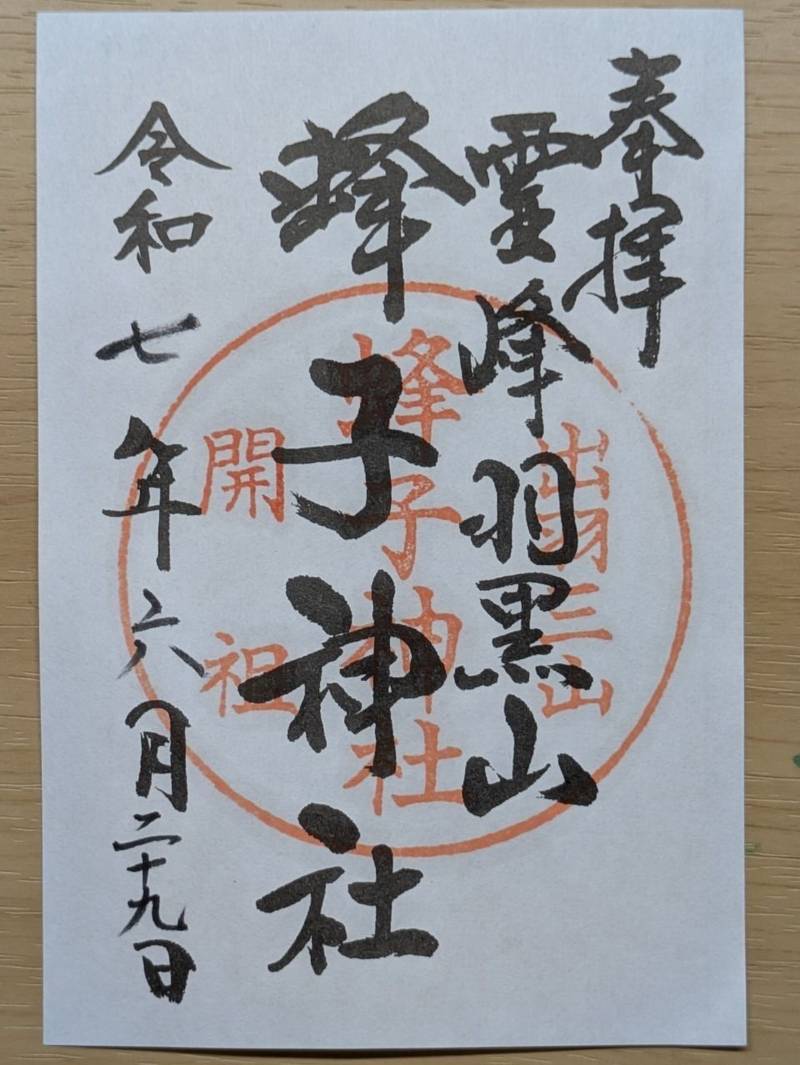 奉拝
霊峰羽黒山
蜂子神社
令和七年六月二十九日
出羽三山
蜂子神社
開祖